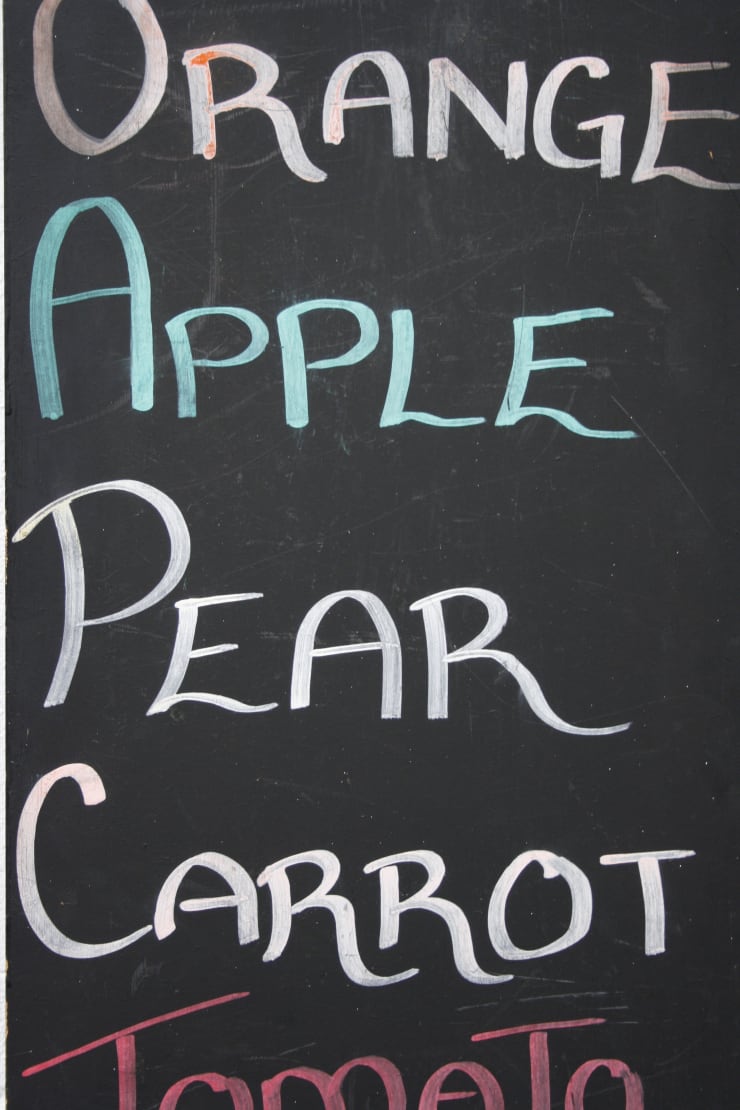 ORANGE
APPLE
PEAR
CARROT
TOMATO